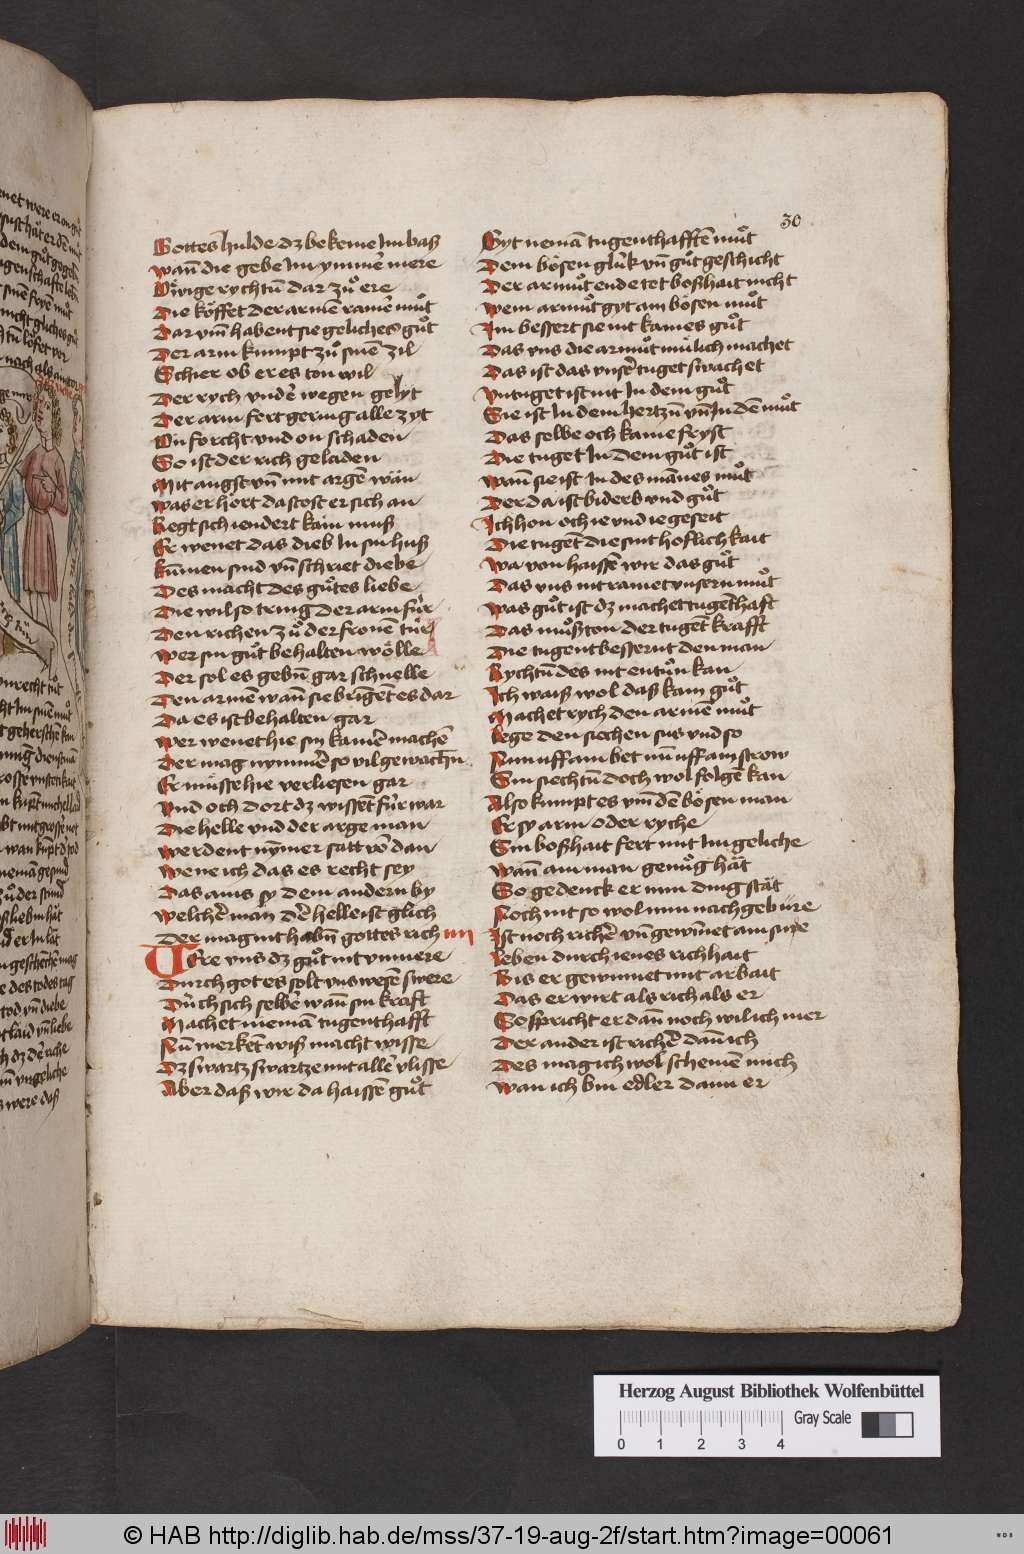 30
Gottes hulde dz bekeme Im bas
wañ die gebe Im ymmer mere
Öwige rychtũ dar zuͦ ere
Die köffet der armẽ ramer muͦt
Dar vm̃ habent sie geliches guͦt
Der arm kumpt zuͦ sinẽ zil
Schier ob er es ton wil
Der rych vnder wegen gelyt
Der arm fert gering alle zyt
On forcht vnd on schaden
So ist der rich geladen
Mit angst vñ mit argẽ wän
was er hört da stost er sich an
Regt sich iendert kain muß
Er wenet das dieb In sin huß
kũmen sind vñ schriet diebe
Des macht des guͦtes liebe
Die wil so tring der arm für
Den richen zuͦ der fronẽ tür
wer sin guͦt behalten wölle
Der sol es gebñ gar schnelle
Den armẽ wañ sie bringẽt es dar
Da es ist behalten gar
wer wenet hie sin kamer machẽ
Der mag nymmer so vil gewachñ
Er müste hie verliesen gar
Vnd och dort dz wissẽt für war
Die helle vnd der arge man
werdent nym̃er satt võ dan
wene ich das es recht sey
Das ains sy dem andern by
welcher man der helle ist glich
Der mag nit habñ gottes rich
Were vns dz guͦt nit vnmere
Durch got es solt vns wesẽ swere
Durch sich selber wañ sin kraft
Machet niemã tugenthafft
Nũ merkẽt wiß macht wisse
Dz swartz swartze mit allẽ vlisse
Aber daß wir da haissẽ guͦt
Gyt nemã tugenthafftẽ muͦt
Dem bösen glük vñ guͦt geschicht
Der armuͦt ende tet boßhait nicht
wem armuͦt gyt am bösen muͦt
Im bessert sie nit kames guͦt
Das vns die armuͦt mülich machet
Das ist das vnser tuget swachet
Vntuget ist nit In dem guͦt
Sie ist In dem hertzñ vñ In dẽ muͦt
Das selbe och kame fryst
Die tuget In dem guͦt ist
wañ sie ist In des mãnes muͦt
Der da ist biderb vnd guͦt
Ich hon och ie vnd ie geseit
Die tugẽt die sint hoflichkait
wa von haissẽ wir das guͦt
Das vns nit ramet vnsern muͦt
was guͦt ist dz machet tugẽthaft
Das muͦß ton der tugẽt krafft
Die tugent bessernt den man
Rychtũ des nit entuͦn kan
Ich waiß wol daß kam guͦt
Machet rych den armẽ muͦt
Lege den siechen sus vnd so
Nun uff am bet nũ uff am strow
Sin siechtũ doch wol folgẽ kan
Also kumpt es vm̃ dẽ bösen man
Er sy arm oder ryche
Sin boßhait fert mit Im geliche
wañ am man genuͦg hät
So gedenck er mm ding stät
Noch nit so wol mm nachgebure
Ist noch richer vñ gewinet am sure
Leben durch ienes richhait
Bis er gewinnet mit arbait
Das er wirt als rich als er
So spricht er dañ noch wil ich mer
Der ander ist richer dañ ich
Des mag ich wol schemen mich
wan ich bin edler dann er
Herzog August Bibliothek Wolfenbüttel
Gray Scale
0 1 2 3 4
© HAB http://diglib.hab.de/mss/37-19-aug-2f/start.htm?image=00061